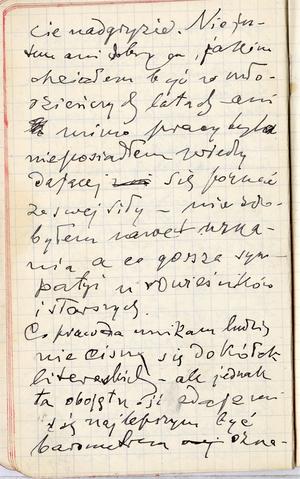 cie nadgryzie. Nie jes-
tem ani dobry ga, jakim
chciałem być w mło-
dzieńczych latach – ani
mimo pracy
nieposiadłem wiedzy
dającej się poznać
ze swej siły – nie zdo-
byłem nawet uzna-
nia a co gorsza sym-
patyi u rówieśników
i starszych.
Co prawda unikam ludzi
nie cisnę się do kółek
literackich – ale jednak
ta obojętność zdaje mi
się najlepszym być
barometrem ozna-